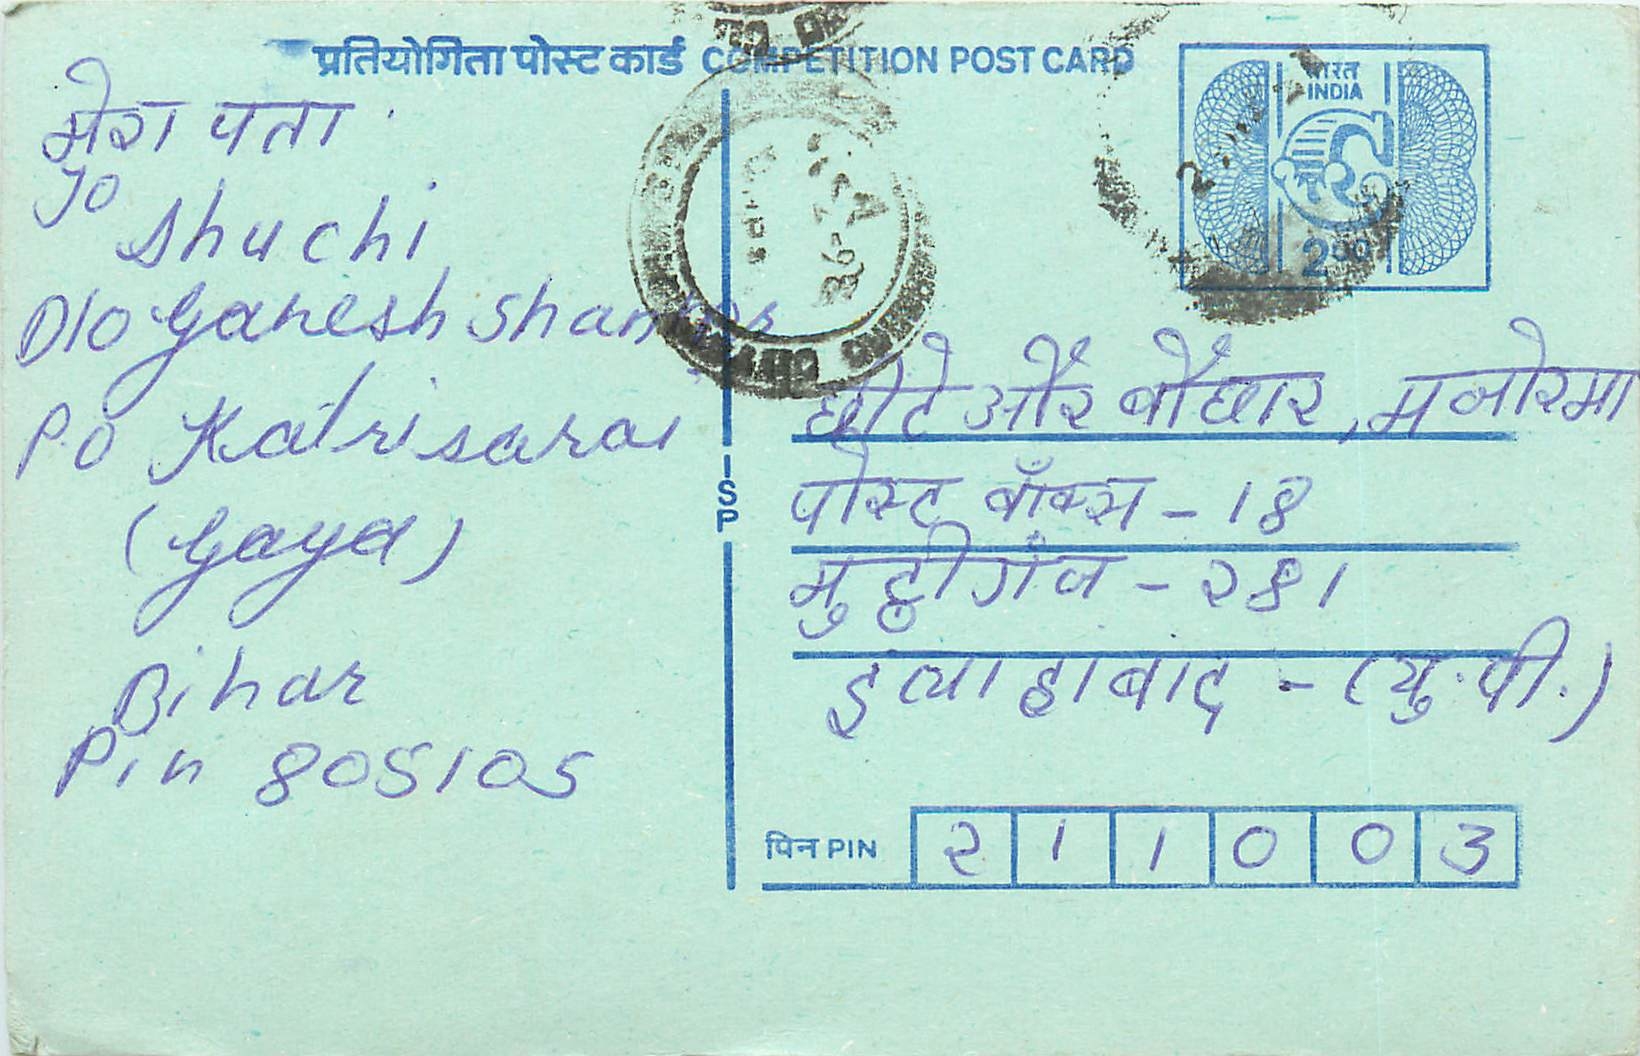 प्रतियोगिता पोस्ट कार्ड COMPETITION POST CARD
भारत
INDIA
2.00
मेरा पता
To
Shuchi
D/o Ganesh Shankar
P.O Katrisarai
(Gaya)
Bihar
Pin 805105
ISP
छीटे और बौछार, मनोरमा
पोस्ट बॉक्स - 18
मुट्ठीगंज - २81
इलाहाबाद - (यु.पी.)
पिन PIN २ 1 1 0 0 3